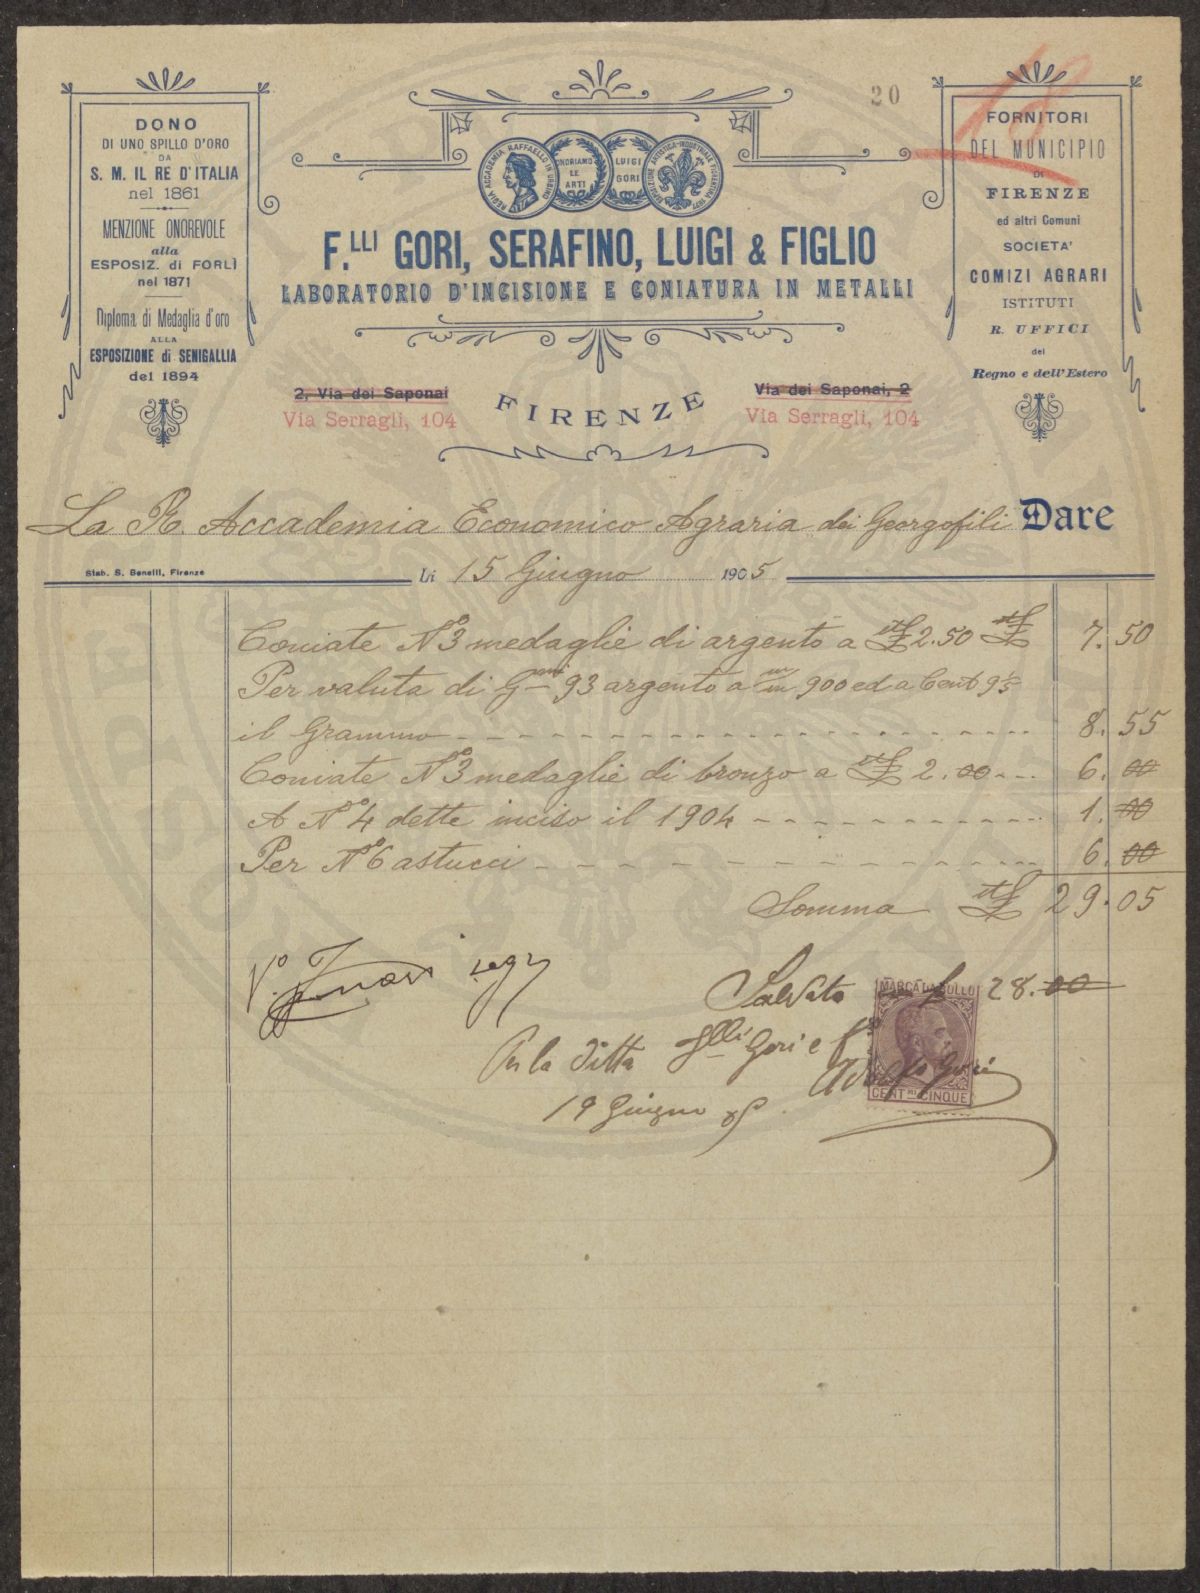 20
18
DONO
DI UNO SPILLO D'ORO
DA
S. M. IL RE D'ITALIA
nel 1861
MENZIONE ONOREVOLE
alla
ESPOSIZ. di FORLÌ
nel 1871
Diploma di Medaglia d'oro
ALLA
ESPOSIZIONE di SENIGALLIA
del 1894
REGIA ACCADEMIA RAFFAELLO IN URBINO
ONORIAMO
LE
ARTI
LUIGI
GORI
F.LLI GORI, SERAFINO, LUIGI & FIGLIO
LABORATORIO D'INCISIONE E CONIATURA IN METALLI
FORNITORI
DEL MUNICIPIO
DI
FIRENZE
ed altri Comuni
SOCIETA'
COMIZI AGRARI
ISTITUTI
R. UFFICI
del
Regno e dell'Estero
2, Via dei Saponai
Via Serragli, 104
FIRENZE
Via dei Saponai, 2
Via Serragli, 104
La R. Accademia Economico Agraria dei Georgofili Dare
Stab. S. Benelli, Firenze
Li 15 Giugno 1905
Coniate No 3 medaglie di argento a £ 2.50 £ 7.50
Per valuta di Gmi 93 argento a 900 ed a Cent 9
il Grammo 8.55
Coniate No 3 medaglie di bronzo a £ 2.00 6.00
A No 4 dette inciso il 1904 1.00
Per No 6 astucci 6.00
Somma £ 29.05
Vo
Saldato £ 28.00
Per la ditta Flli Gori e Fo
Adolfo Gori
19 Giugno 05
MARCA DA BOLLO
CENTmi CINQUE